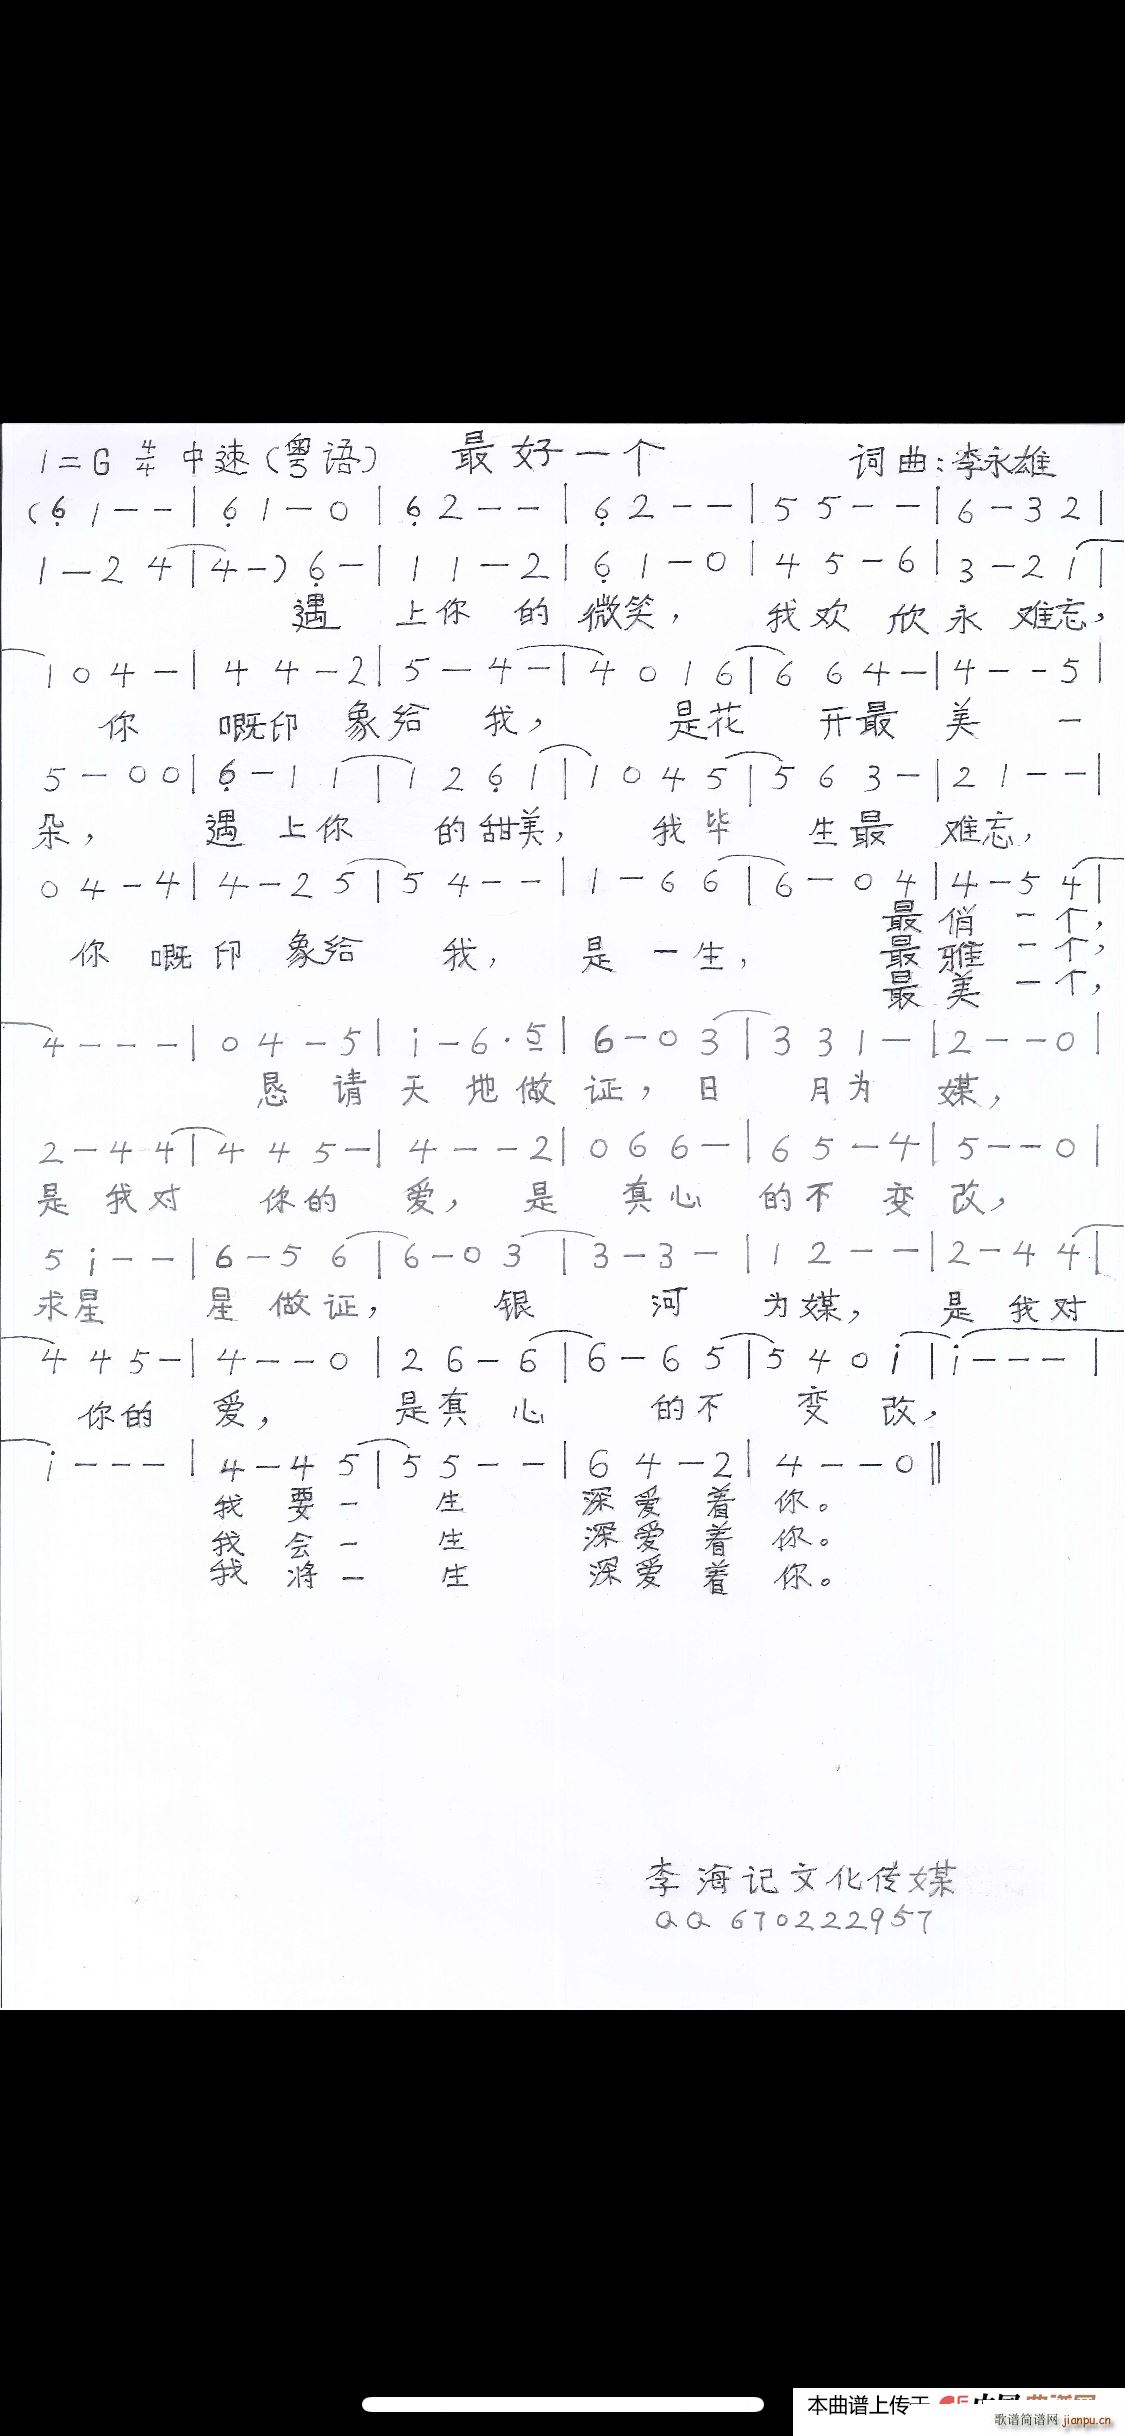 1=G 4/4 中速(粤语) 最好一个 词曲:李永雄
(6̣ 1 - - | 6̣ 1 - 0 | 6̣ 2 - - | 6̣ 2 - - | 5 5 - - | 6 - 3 2 |
1 - 2 4 | 4 - ) 6̣ - | 1 1 - 2 | 6̣ 1 - 0 | 4 5 - 6 | 3 - 2 1 |
遇 上你 的 微笑, 我欢 欣 永 难忘,
1 0 4 - | 4 4 - 2 | 5 - 4 - | 4 0 1 6 | 6 6 4 - | 4 - - 5 |
你 嘅印 象给 我, 是花 开最 美 一
5 - 0 0 | 6̣ - 1 1 | 1 2 6̣ 1 | 1 0 4 5 | 5 6 3 - | 2 1 - - |
朵, 遇 上你 的甜美, 我毕 生最 难忘,
0 4 - 4 | 4 - 2 5 | 5 4 - - | 1 - 6 6 | 6 - 0 4 | 4 - 5 4 |
最 俏 一个,
你 嘅 印 象给 我, 是 一生, 最 雅 一个,
最 美 一个,
4 - - - | 0 4 - 5 | i - 6 · 5 | 6 - 0 3 | 3 3 1 - | 2 - - 0 |
恳 请 天 地 做 证, 日 月为 媒,
2 - 4 4 | 4 4 5 - | 4 - - 2 | 0 6 6 - | 6 5 - 4 | 5 - - 0 |
是 我对 你的 爱, 是 真心 的不 变 改,
5 i - - | 6 - 5 6 | 6 - 0 3 | 3 - 3 - | 1 2 - - | 2 - 4 4 |
求星 星 做 证, 银 河 为媒, 是 我对
4 4 5 - | 4 - - 0 | 2 6 - 6 | 6 - 6 5 | 5 4 0 i | i - - - |
你的 爱, 是真 心 的不 变 改,
i - - - | 4 - 4 5 | 5 5 - - | 6 4 - 2 | 4 - - 0 ‖
我 要 一 生 深 爱 着 你。
我 会 一 生 深 爱 着 你。
我 将 一 生 深 爱 着 你。
李海记文化传媒
QQ 670222957
本曲谱上传于
歌谱简谱网 jianpu.cn